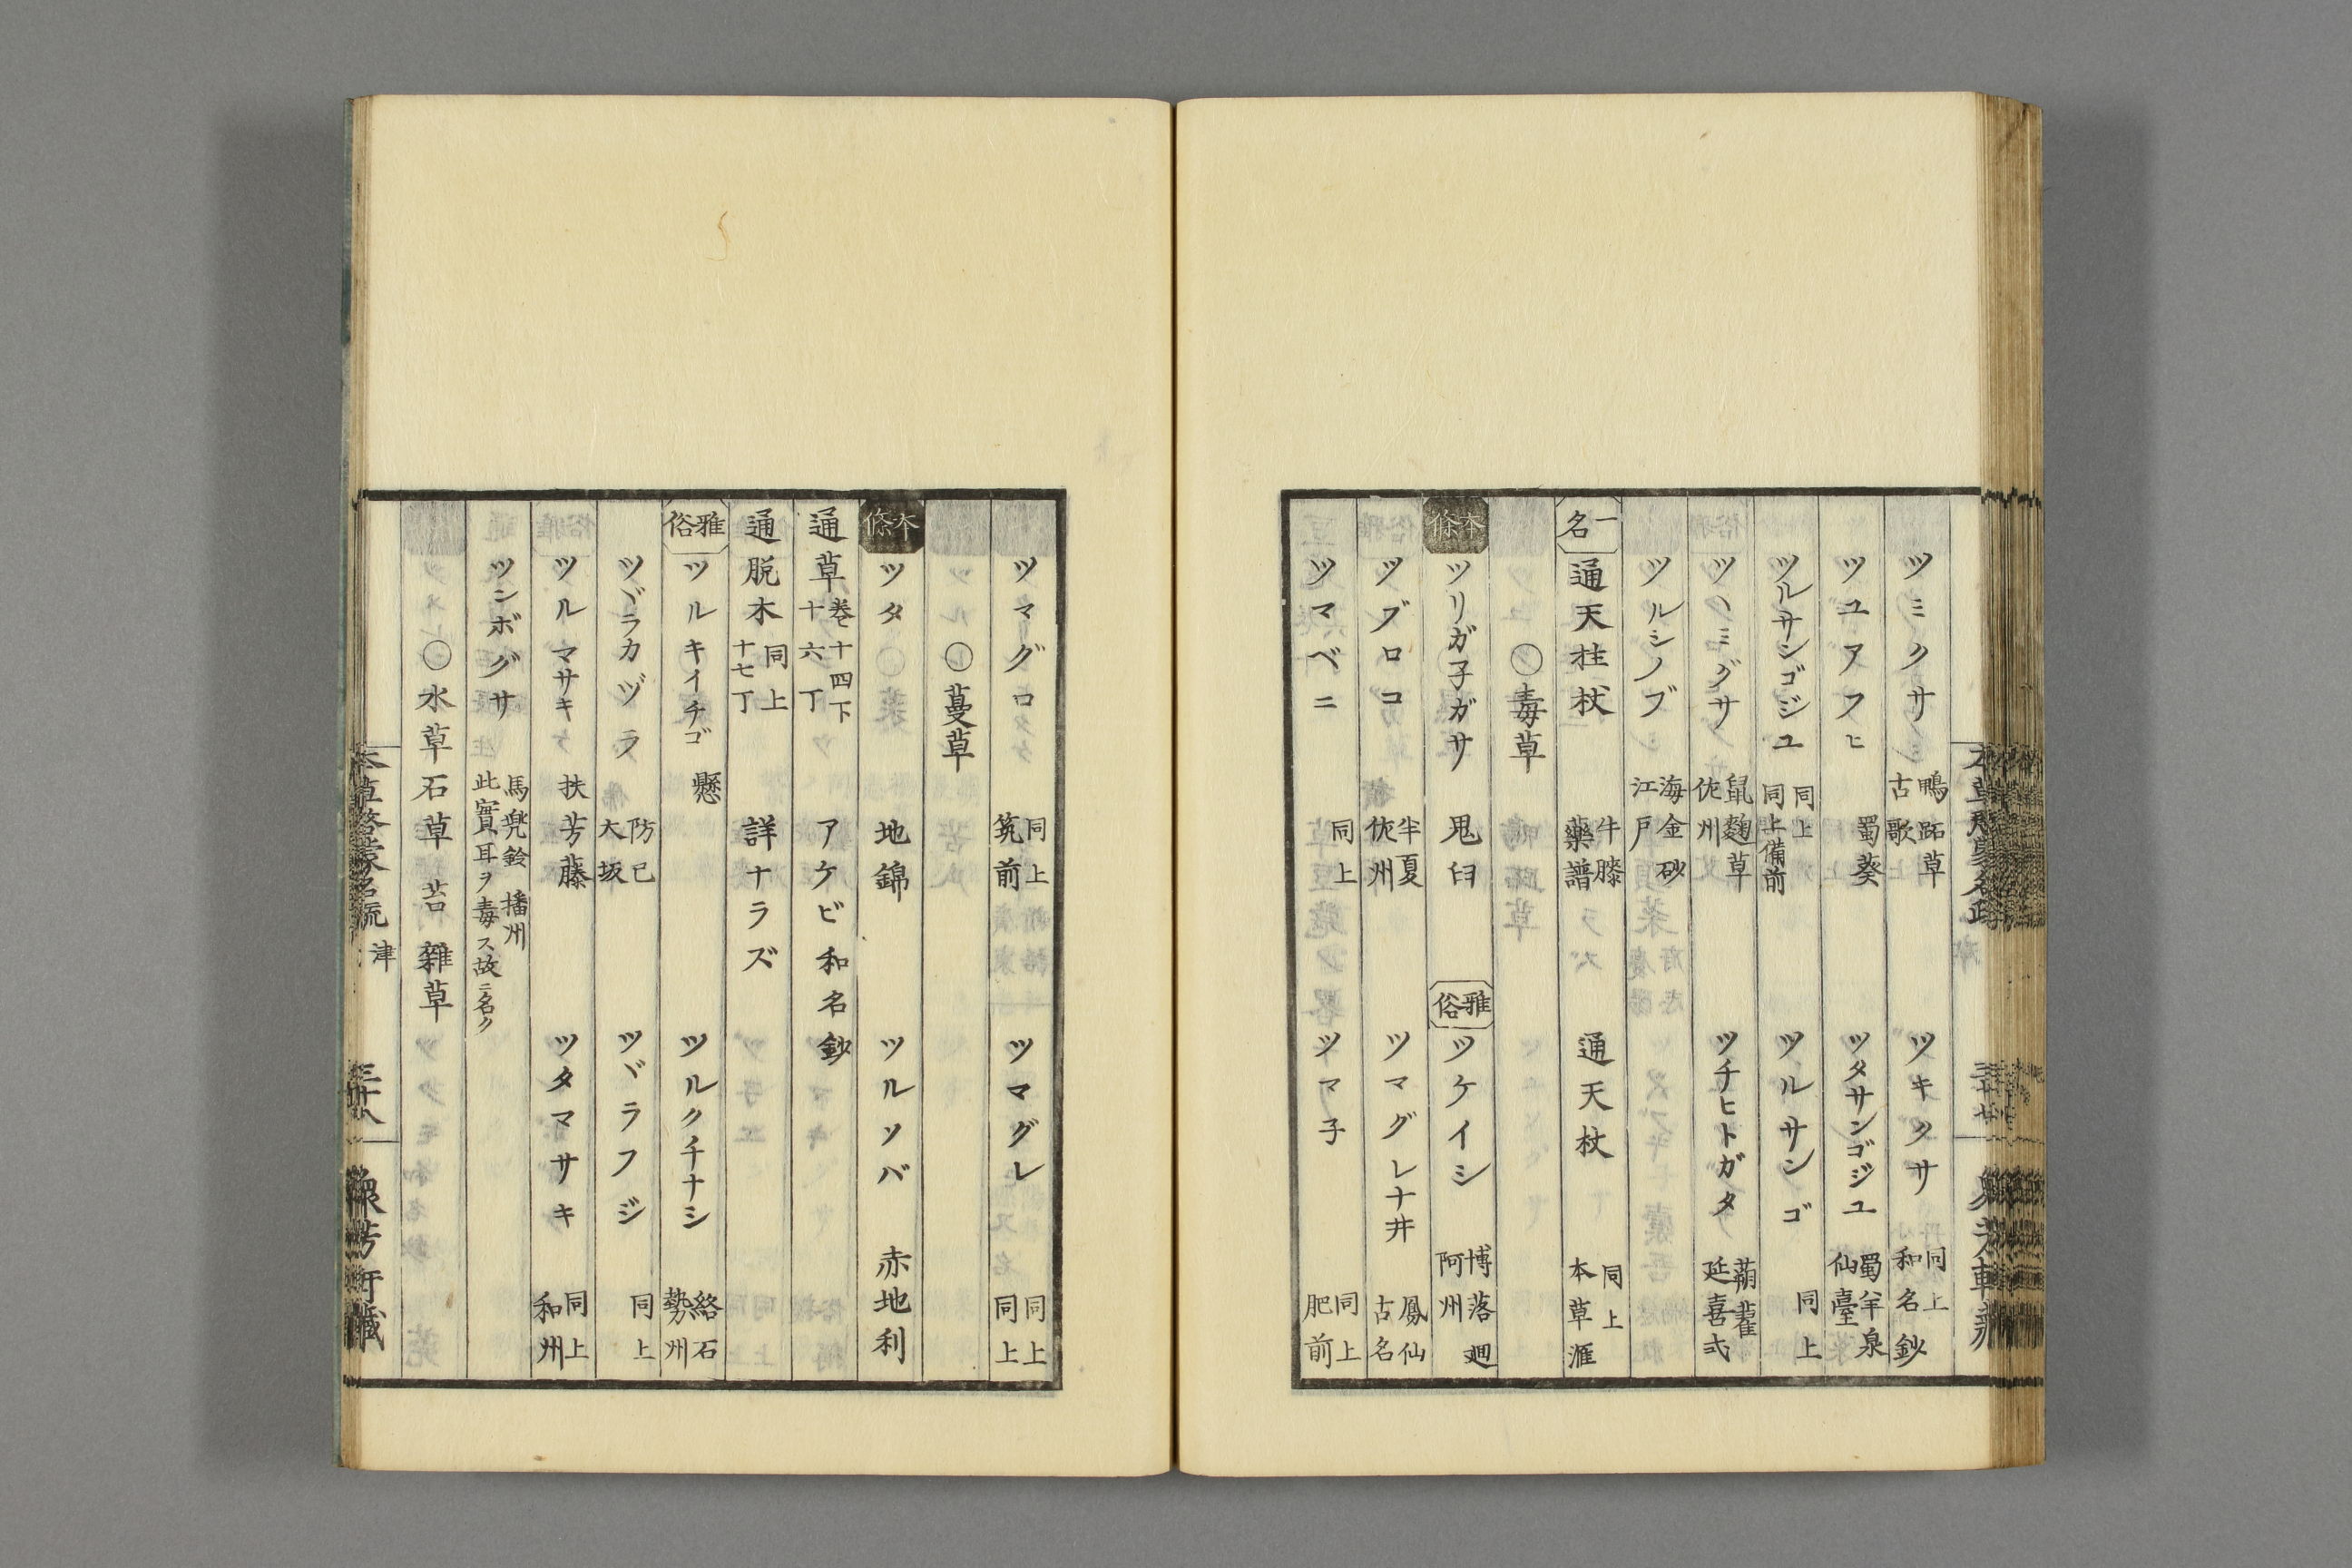 ツミクサ 鴨跖草 古歌 ツキクサ 同上 和名鈔
ツユアフヒ 蜀葵 ツタサンゴジユ 蜀羊泉 仙臺
ツルサンゴジユ 同上 同上備前 ツルサンゴ 同上
ツヽミグサ 鼠麹草 佐州 ツチヒトガタ 蒴藋 延喜式
ツルシノブ 海金砂 江戸
一名 通天柱杖 牛膝 藥譜 通天杖 同上 本草滙
○毒草
本條 ツリガ子ガサ 鬼臼 雅俗 ツケイシ 博落廻 阿州
ツブロコ 半夏 佐州 ツマグレナ井 鳳仙 古名
ツマベニ 同上 ツマ子 同上 肥前
ツマグロ 同上 筑前 ツマグレ 同上 同上
○蔓草
本條 ツタ 地錦 ツルソバ 赤地利
通草 卷十四下 十六丁 アケビ 和名鈔
通脱木 同上 十七丁 詳ナラズ
雅俗 ツルキイチゴ 懸 ツルクチナシ 絡石 勢州
ツヾラカヅラ 防已 大坂 ツヾラフジ 同上
ツルマサキ 扶芳藤 ツタマサキ 同上 和州
ツンボグサ 馬兜鈴 播州 此實耳ヲ毒ス故ニ名ク
○水草 石草 苔 雜草
本草啓蒙名疏 津 三十八 衆芳軒藏